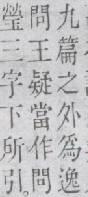 九篇之外爲逸
問王疑當作問
瑩二字下所引。